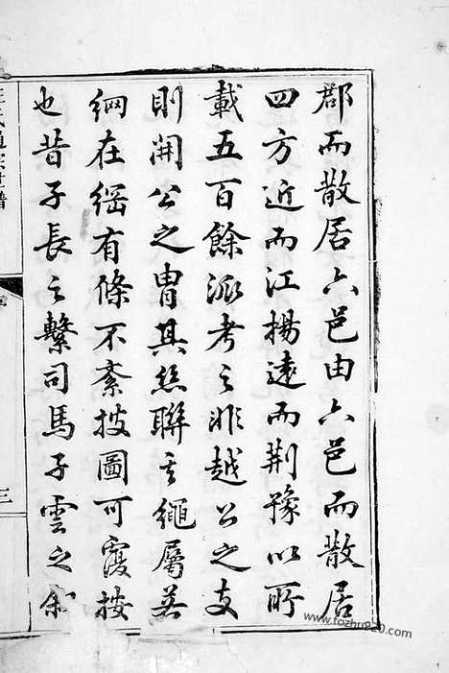 郡而散居六邑由六邑而散居
四方近而江楊遠而荆豫以所
載五百餘派考之非越公之支
則開公之冑其絲聯之繩屬若
綱在綱有條不紊披圖可覆按
也昔子長之繫司馬子雲之
汪氏通宗世譜
三
www.fozhu920.com